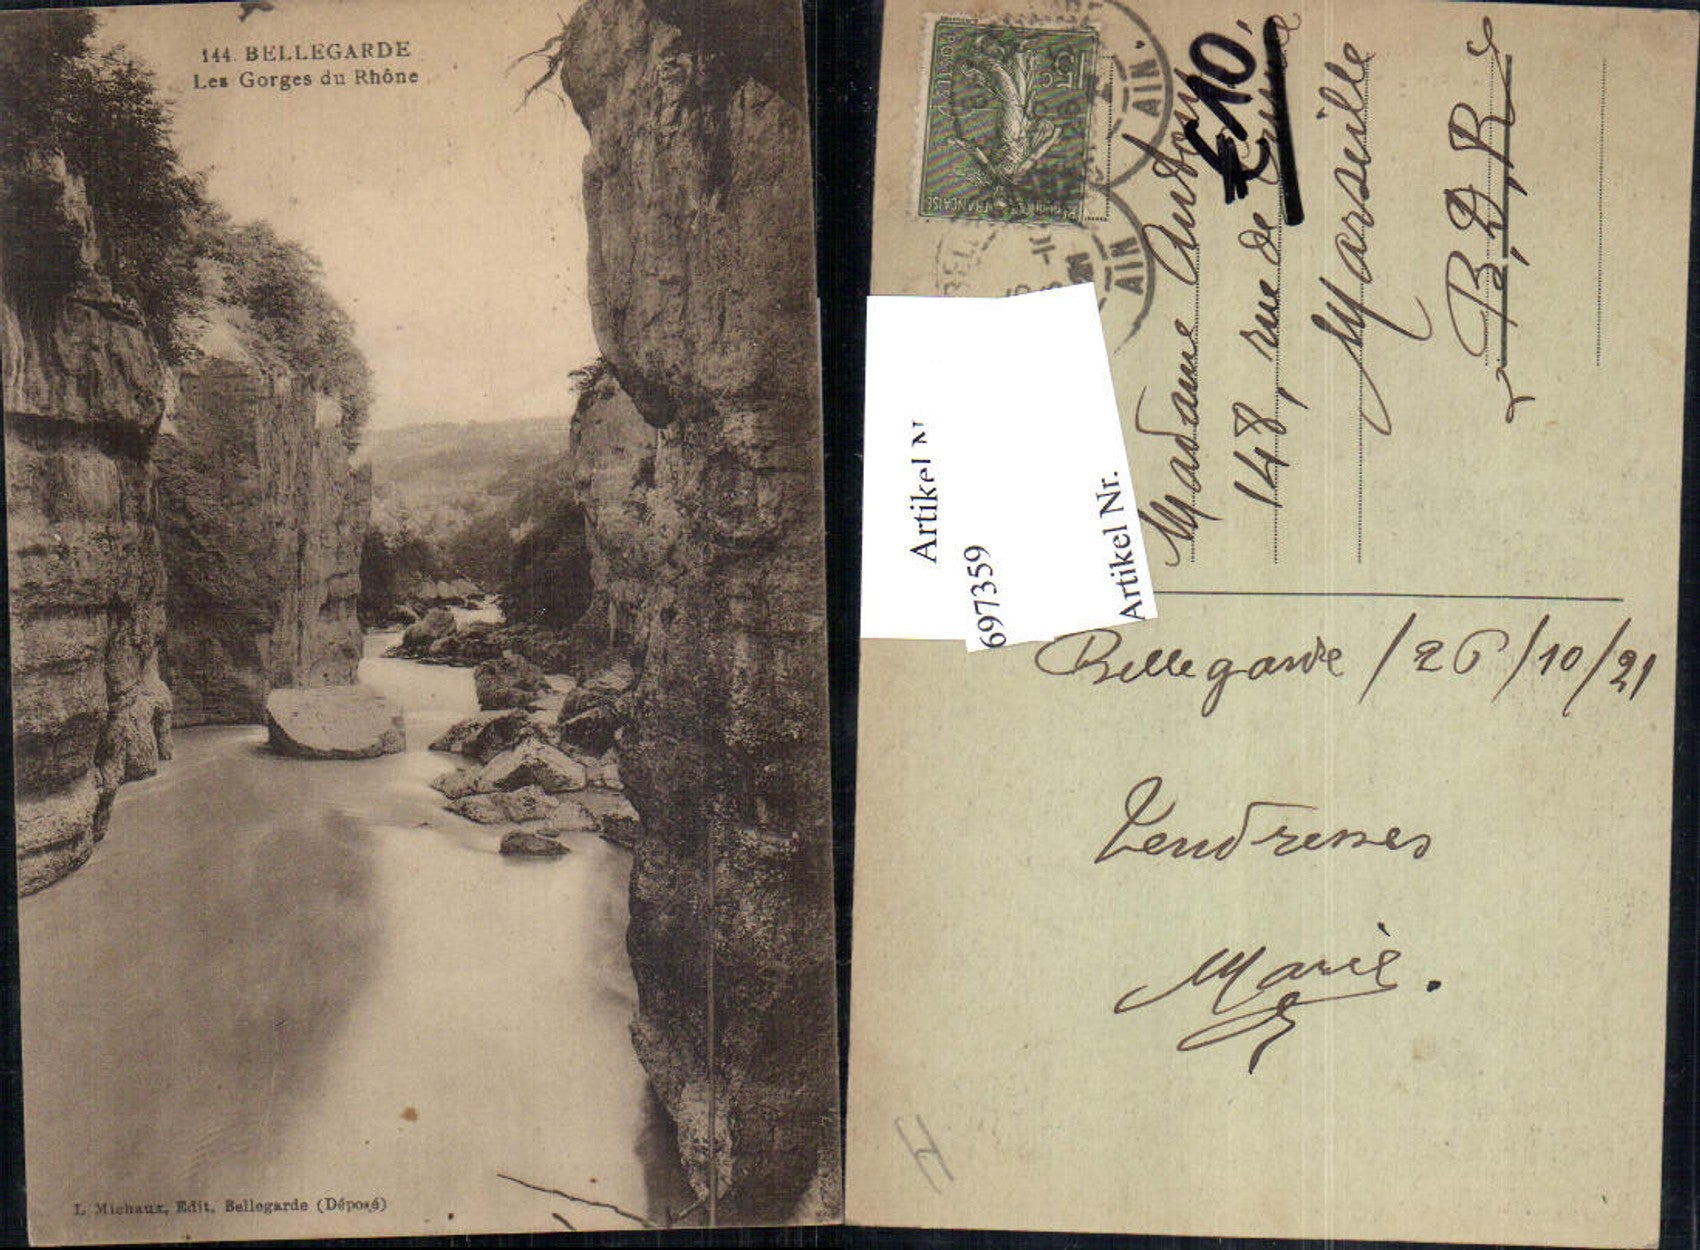 144. BELLEGARDE
Les Gorges du Rhône
L. Michaux, Edit. Bellegarde (Déposé)
POSTES
15c
REPUBLIQUE FRANÇAISE
AIN
AIN
€10,
Madame
148, rue de
Marseille
B. D. R
Artikel N
697359
Artikel Nr.
Bellegarde / 26/10/21
Tendresses
Marie.